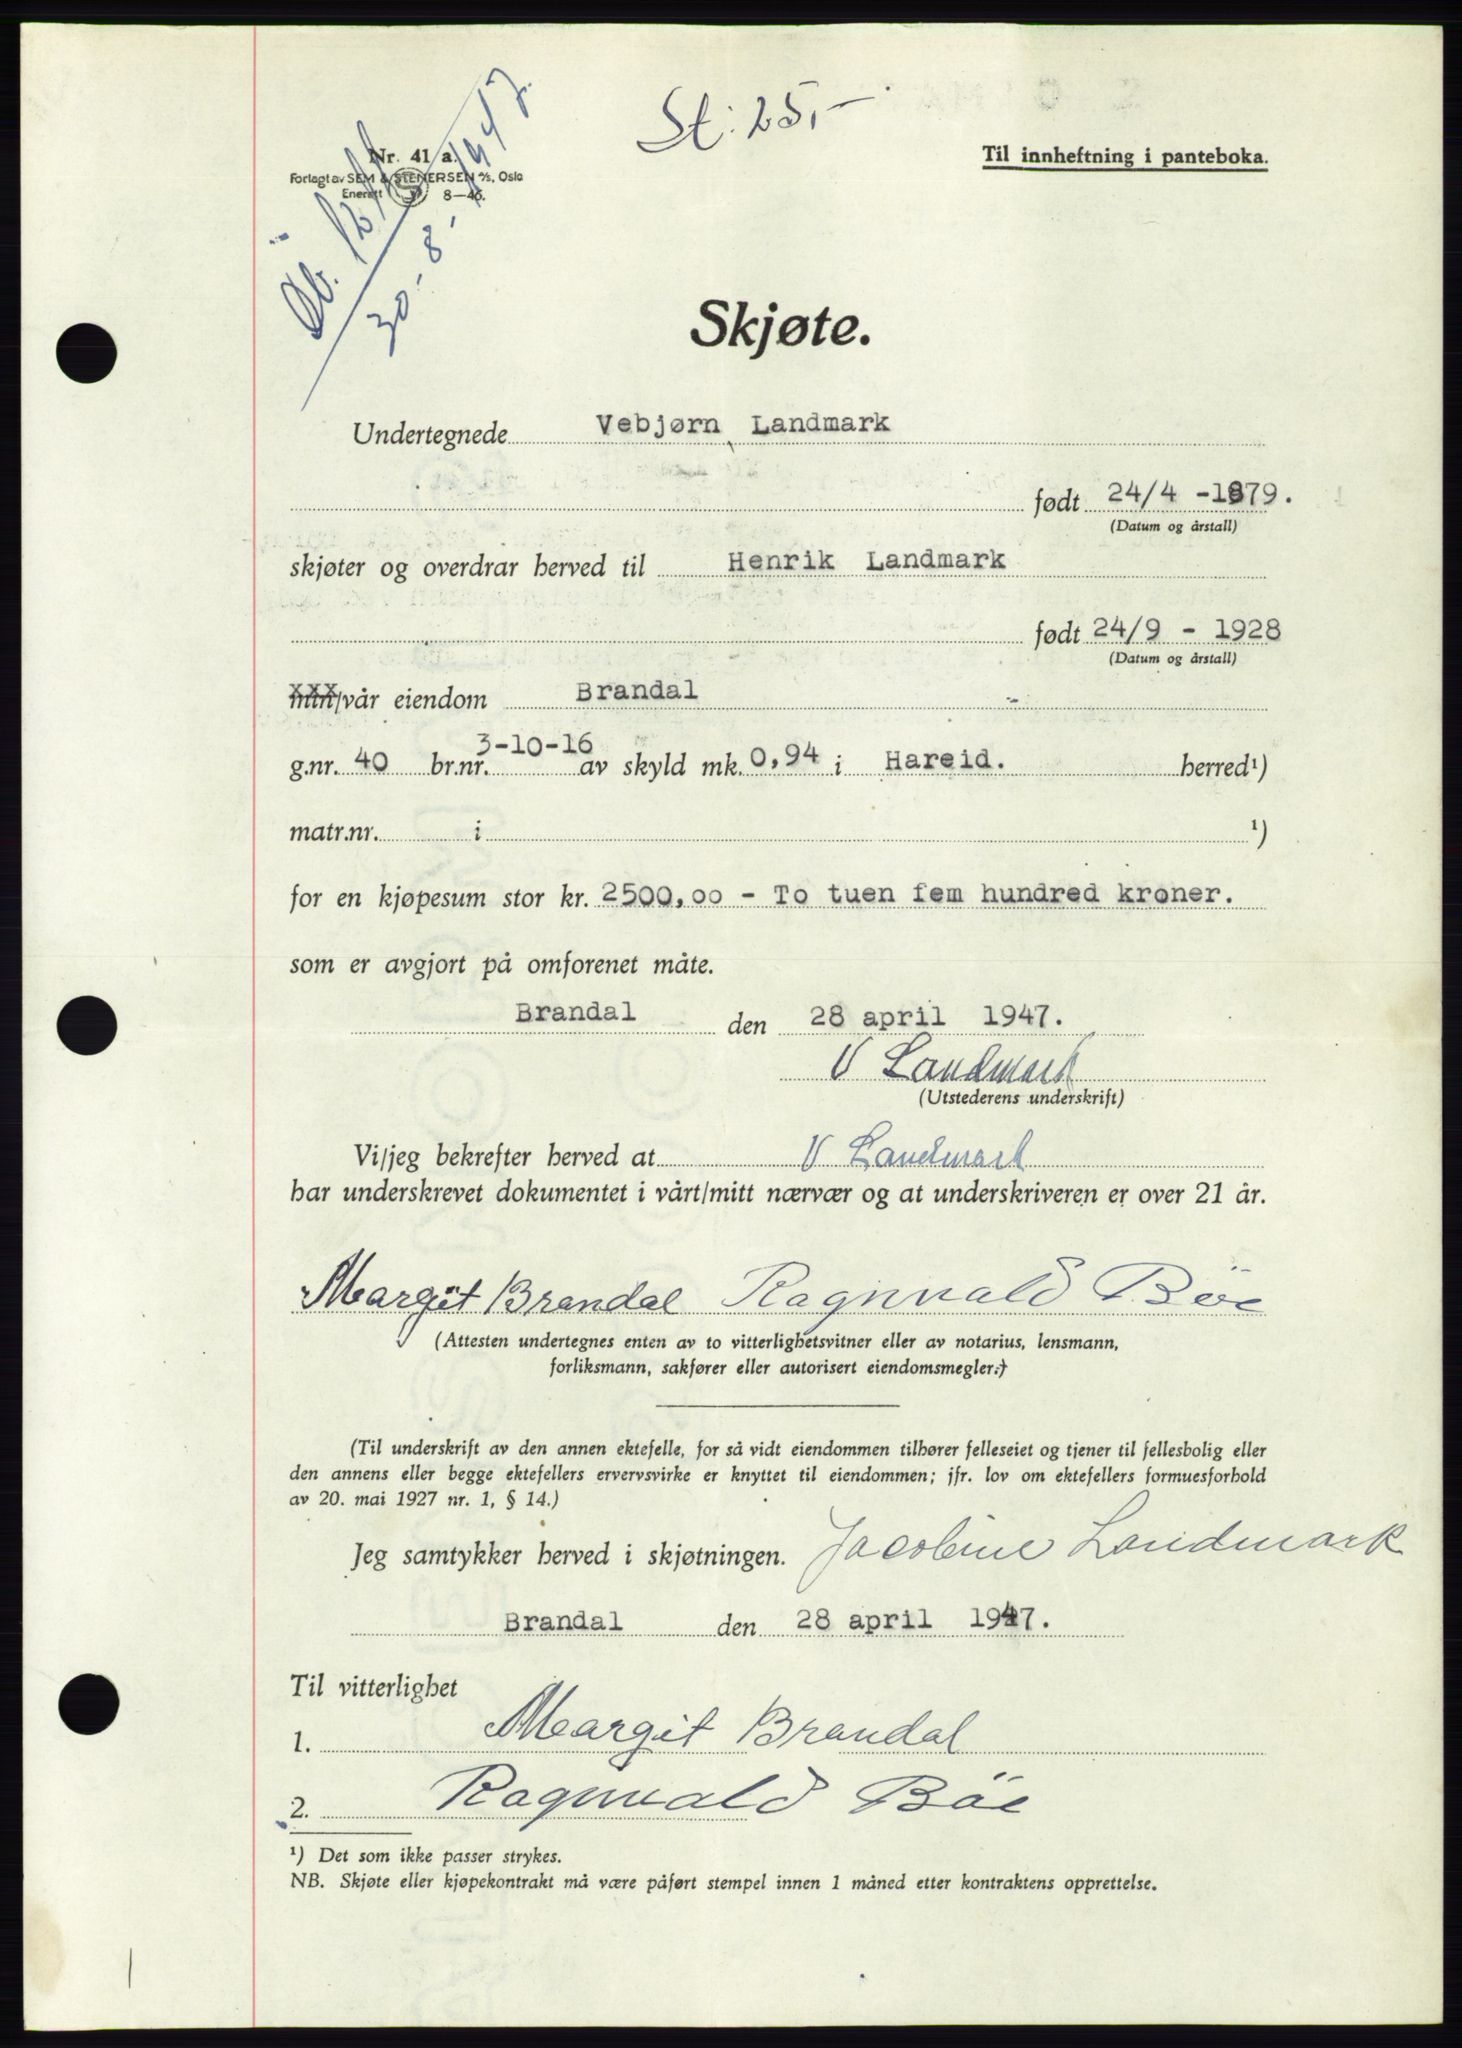 St: 25,-
Nr. 41 a.
Til innheftning i panteboka.
Forlagt av SEM & STENERSEN A/S, Oslo
Enerett 8—46.
30-8-1947.
Skjøte.
Undertegnede Vebjørn Landmark
født 24/4 -1879.
(Datum og årstall)
skjøter og overdrar herved til Henrik Landmark
født 24/9 - 1928
(Datum og årstall)
min/vår eiendom Brandal
g.nr. 40 br.nr. 3-10-16 av skyld mk. 0,94 i Hareid. herred¹)
matr.nr. i ¹)
for en kjøpesum stor kr. 2500,00 - To tuen fem hundred kroner.
som er avgjort på omforenet måte.
Brandal den 28 april 1947.
V Landmark
(Utstederens underskrift)
Vi/jeg bekrefter herved at V Landmark
har underskrevet dokumentet i vårt/mitt nærvær og at underskriveren er over 21 år.
Margit Brandal Ragnvald Böe
(Attesten undertegnes enten av to vitterlighetsvitner eller av notarius, lensmann,
forliksmann, sakfører eller autorisert eiendomsmegler.)
(Til underskrift av den annen ektefelle, for så vidt eiendommen tilhører felleseiet og tjener til fellesbolig eller
den annens eller begge ektefellers ervervsvirke er knyttet til eiendommen; jfr. lov om ektefellers formuesforhold
av 20. mai 1927 nr. 1, § 14.)
Jeg samtykker herved i skjøtningen. Jacobine Landmark
Brandal den 28 april 1947.
Til vitterlighet
1. Margit Brandal
2. Ragnvald Böe
¹) Det som ikke passer strykes.
NB. Skjøte eller kjøpekontrakt må være påført stempel innen 1 måned etter kontraktens opprettelse.